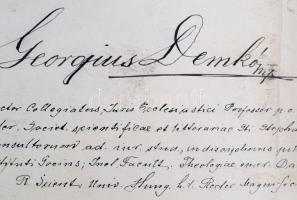 Georgius Demkó mp
ctor Collegiatus, Juris Ecclesiastici Professor p. o
ter, Societ. scientificae et litterariae Sti. Stepha
onsultorum ad. iur. stud. in disciplinis
stituti Socius; Incl. Facult. Theologiae emer. D
R. Scient. Univ. Hung. h. t. Rector Magnific